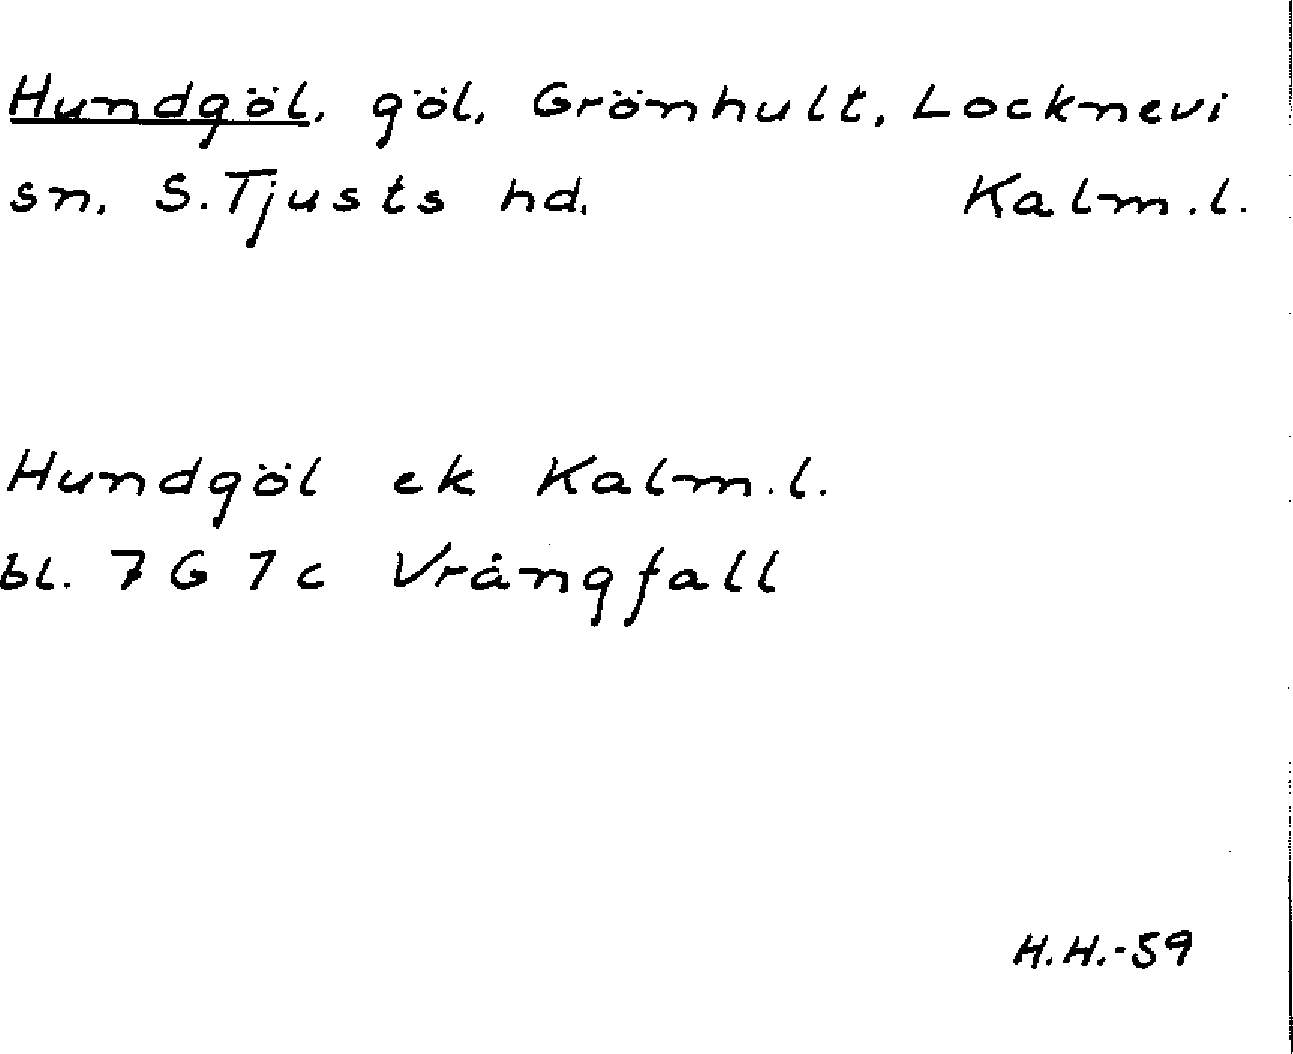 Hundgöl, göl, Grönhult, Locknevi
sn. S. Tjusts hd. Kalm.l.
Hundgöl ek Kalm.l.
bl. 7 G 1 c Vrångfall
H.H.-59